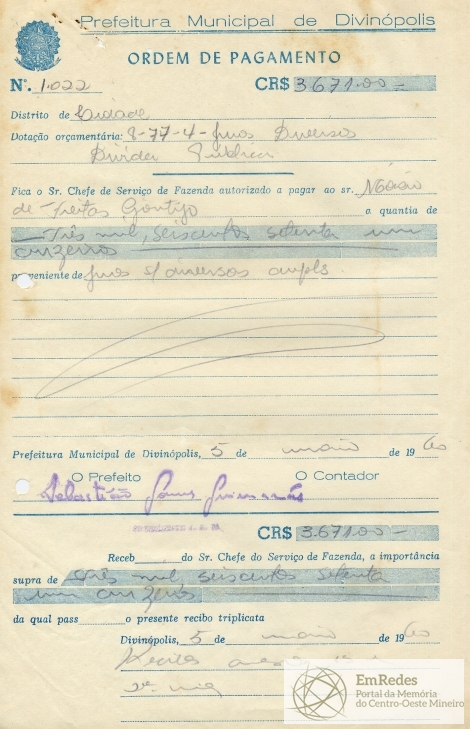 Prefeitura Municipal de Divinópolis
ORDEM DE PAGAMENTO
Nº. 1.022 CR$ 3.671.00 =
Distrito de Cidade
Dotação orçamentária: 8-77-4- Juros Diversos
Divida Pública
Fica o Sr. Chefe de Serviço de Fazenda autorizado a pagar ao sr.
de Freitas Gontijo a quantia de
Três mil, seiscentos setenta um
cruzeiros
proveniente de juros s/ diversos
Prefeitura Municipal de Divinópolis, 5 de maio de 1960
O Prefeito O Contador
Sebastião Gomes Guimarães
CR$ 3.671.00 =
Receb do Sr. Chefe do Serviço de Fazenda, a importância
supra de Três mil seiscentos setenta
um cruzeiros
da qual pass o presente recibo triplicata
Divinópolis, 5 de maio de 1960
2ª via
EmRedes
Portal da Memória
do Centro-Oeste Mineiro